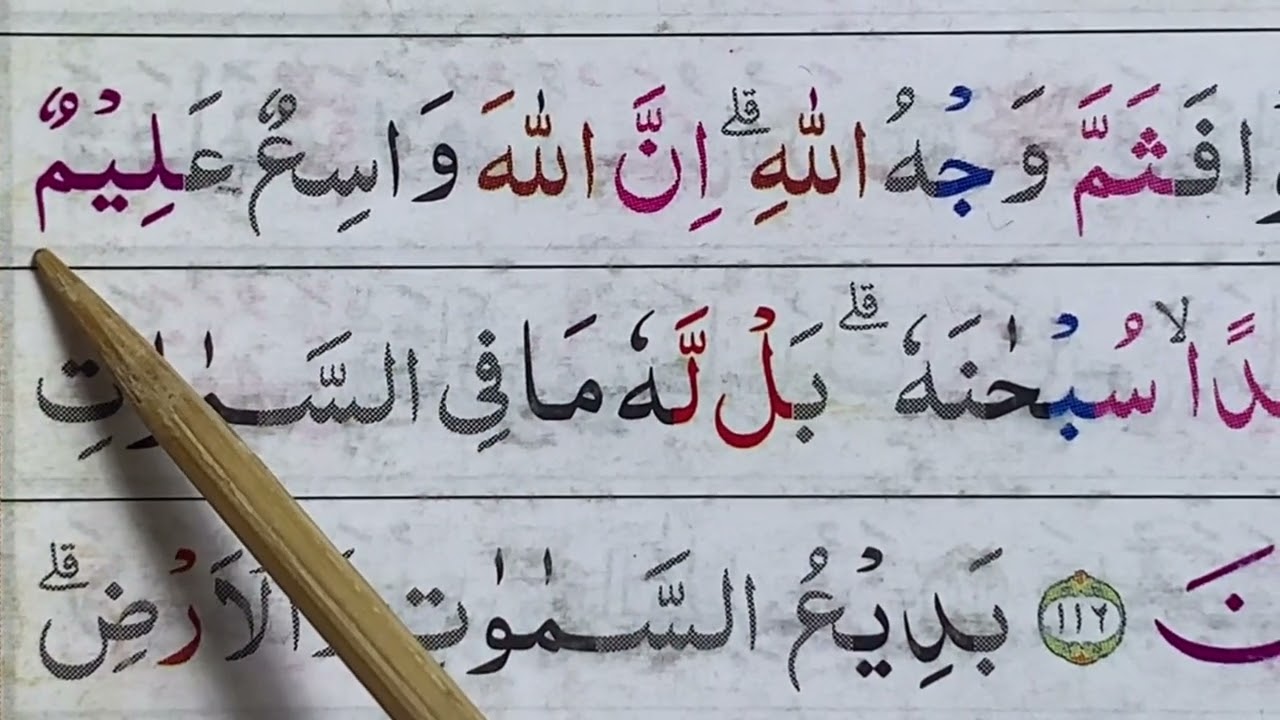 وا فَثَمَّ وَجْهُ اللّٰهِ ۗ اِنَّ اللّٰهَ وَاسِعٌ عَلِيْمٌ
دًا ۙ سُبْحٰنَهٗ ۗ بَلْ لَّهٗ مَا فِى السَّمٰوٰتِ
نَ ١١٦ بَدِيْعُ السَّمٰوٰتِ وَالْاَرْضِ ۗ